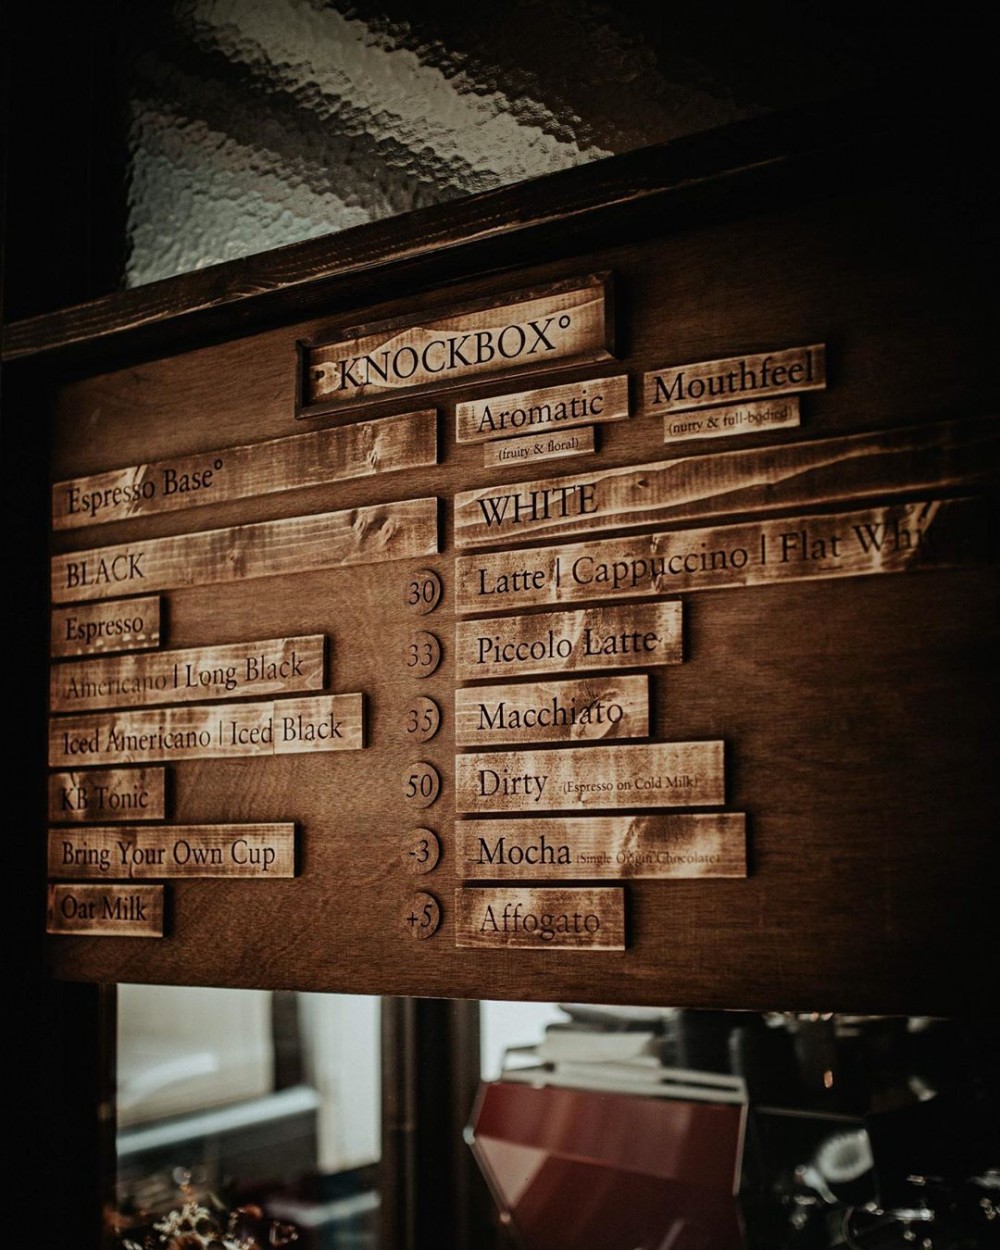 KNOCKBOX°
Espresso Base°
Aromatic
(fruity & floral)
Mouthfeel
(nutty & full-bodied)
BLACK
Espresso 30
Americano | Long Black 33
Iced Americano | Iced Black 35
KB Tonic 50
Bring Your Own Cup -3
Oat Milk +5
WHITE
Latte | Cappuccino | Flat Whi
Piccolo Latte
Macchiato
Dirty (Espresso on Cold Milk)
Mocha (Single Origin Chocolate)
Affogato